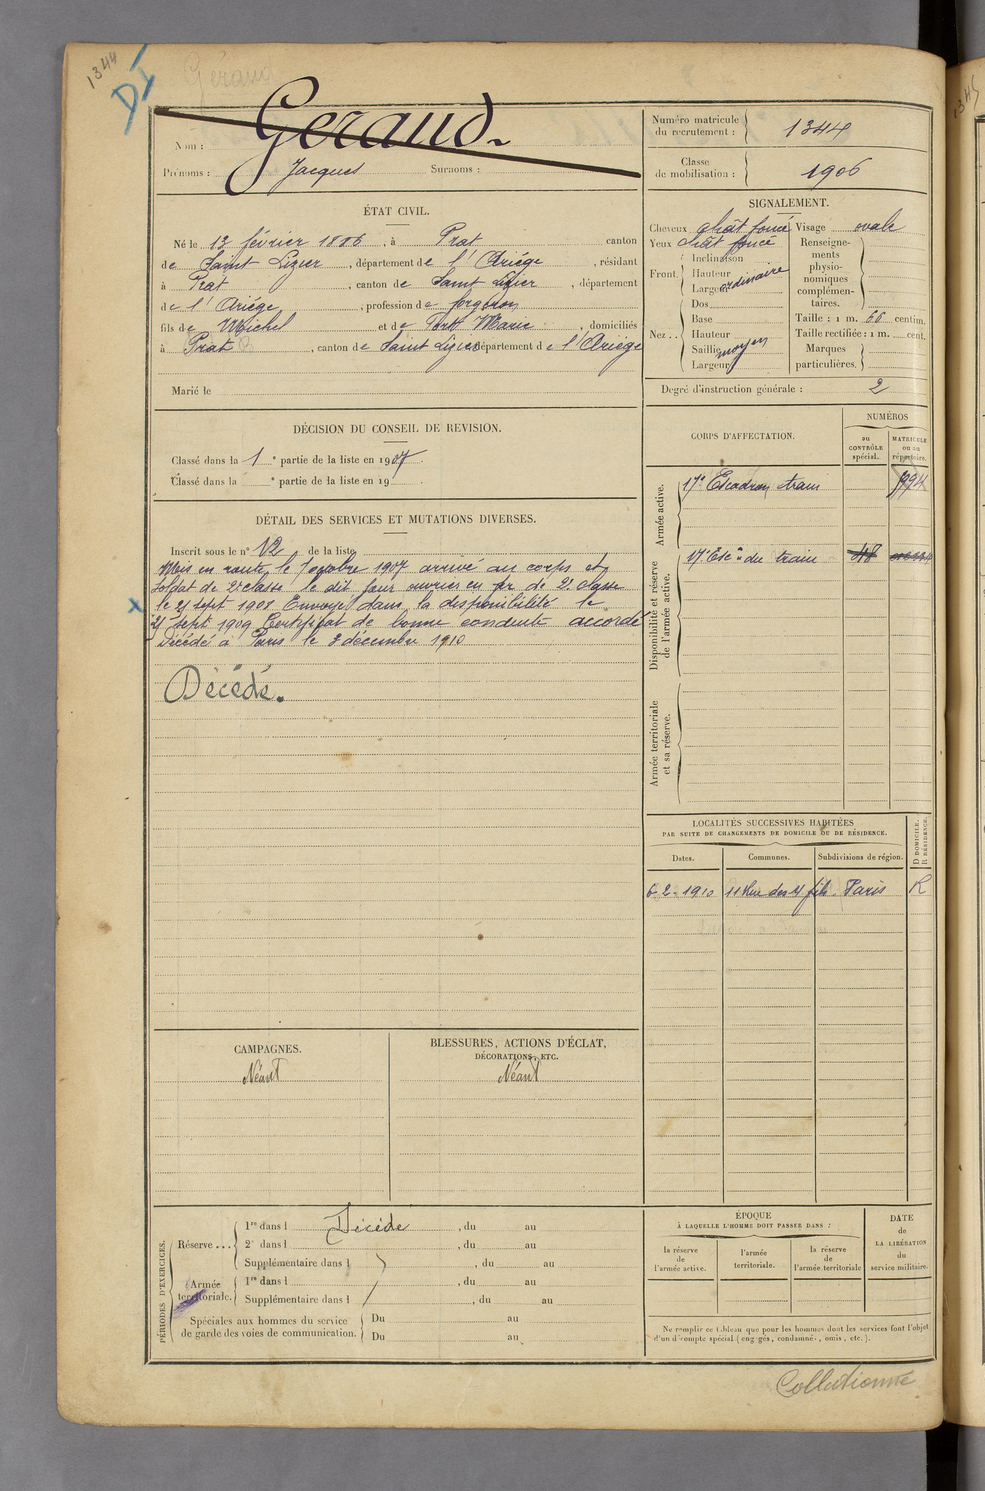 1344
DI
Géraud
Nom : Géraud
Prénoms : Jacques Surnoms :
Numéro matricule du recrutement : 1344
Classe de mobilisation : 1906
ÉTAT CIVIL.
Né le 13 février 1886, à Prat canton
de Saint Lizier, département de l'Ariége, résidant
à Prat, canton de Saint Lizier, département
de l'Ariége, profession de forgeron
fils de Michel et de Marie, domiciliés
à Prat, canton de Saint Lizier département de l'Ariége
Marié le
SIGNALEMENT.
Cheveux chât foncé Visage ovale
Yeux chât foncé
Front. Inclinaison
Hauteur
Largeur ordinaire
Nez .. Dos
Base
Hauteur
Saillie moyen
Largeur
Renseignements physionomiques complémentaires.
Taille : 1 m. 66 centim.
Taille rectifiée : 1 m. cent.
Marques particulières.
Degré d'instruction générale : 2
DÉCISION DU CONSEIL DE REVISION.
Classé dans la 1 e partie de la liste en 1907.
Classé dans la e partie de la liste en 19
DÉTAIL DES SERVICES ET MUTATIONS DIVERSES.
Inscrit sous le n° 12 de la liste
Mis en route le 7 octobre 1907 arrivé au corps et
soldat de 2e classe le dit jour ouvrier en fer de 2e classe
le 25 sept 1908 Envoyé dans la disponibilité le
sept 1909 Certificat de bonne conduite accordé
Décédé à Paris le 3 décembre 1910
Décédé.
CORPS D'AFFECTATION.
NUMÉROS
au CONTRÔLE spécial.
MATRICULE ou au répertoire.
Armée active.
17e Escadron train
Disponibilité et réserve de l'armée active.
17e Esc on du train 48
Armée territoriale et sa réserve.
LOCALITÉS SUCCESSIVES HABITÉES
PAR SUITE DE CHANGEMENTS DE DOMICILE OU DE RÉSIDENCE.
D DOMICILE. R RÉSIDENCE.
Dates. Communes. Subdivisions de région.
6-2-1910 11 Rue des 4 fils Paris R
CAMPAGNES.
Néant
BLESSURES, ACTIONS D'ÉCLAT,
DÉCORATIONS, ETC.
Néant
PÉRIODES D'EXERCICES.
Réserve ... 1re dans l Décédé, du au
2e dans l, du au
Supplémentaire dans l, du au
Armée territoriale. 1re dans l, du au
Supplémentaire dans l, du au
Spéciales aux hommes du service de garde des voies de communication. Du au
Du au
ÉPOQUE
À LAQUELLE L'HOMME DOIT PASSER DANS :
la réserve de l'armée active.
l'armée territoriale.
la réserve de l'armée territoriale
DATE de LA LIBÉRATION du service militaire.
Ne remplir ce tableau que pour les hommes dont les services font l'objet
d'un décompte spécial (engagés, condamnés, omis, etc.).
Collationné